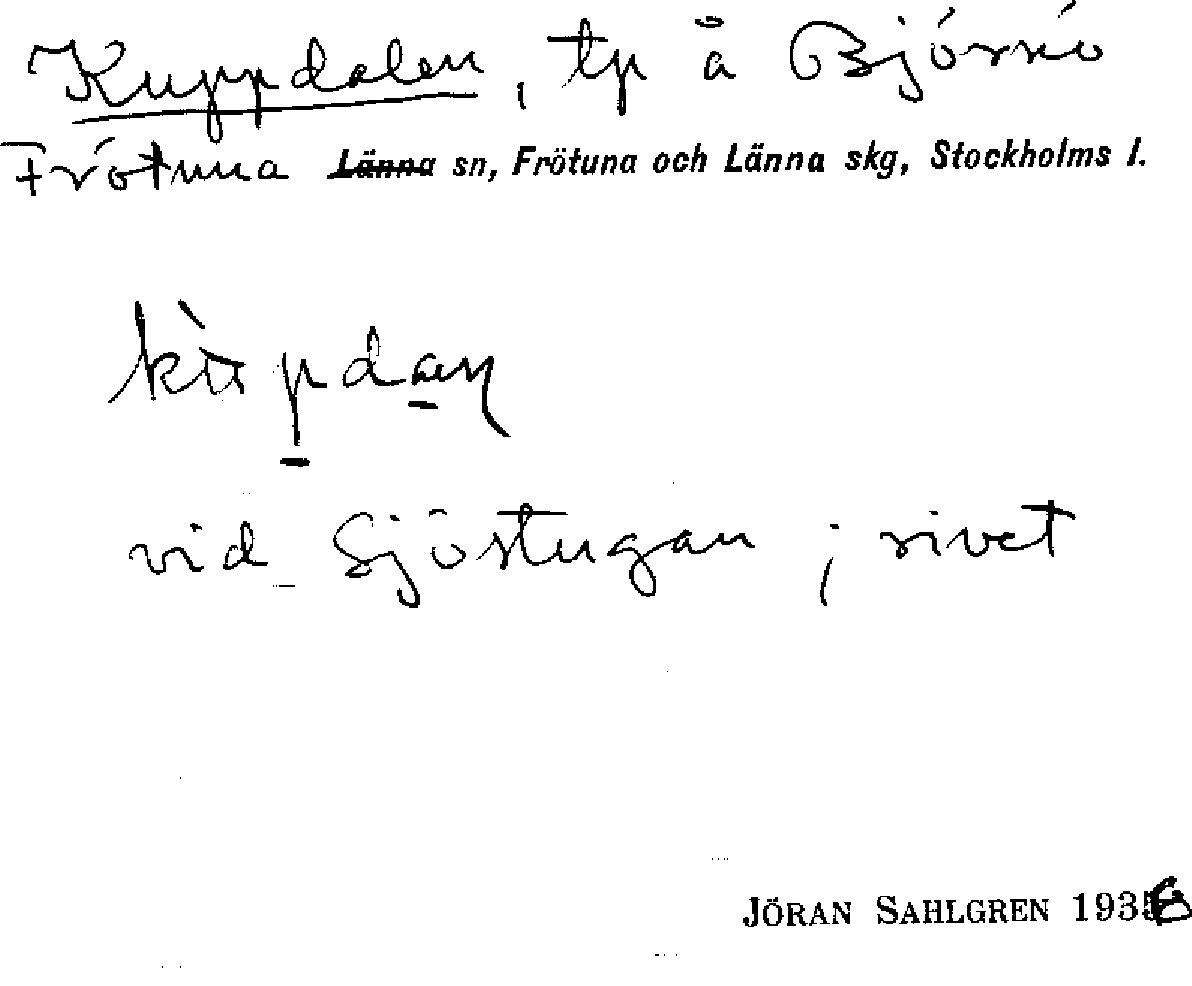 Kuppdalen, tp å Björkö
Frötuna Länna sn, Frötuna och Länna skg, Stockholms l.
vid Sjöstugan ; rivet
JÖRAN SAHLGREN 1936